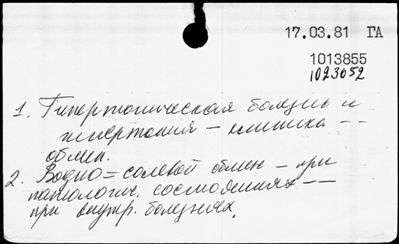 17.03.81 ГА
1013855
1023052
1. Гипертоническая болезнь и
гипертония - клиника --
обмен.
2. Водно=солевой обмен - при
патологич. состояниях --
при внутр. болезнях.